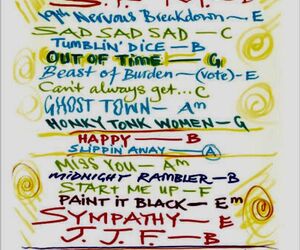 19th Nervous Breakdown — E
SAD SAD SAD — C
TUMBLIN' DICE — B
OUT OF TIME — G
Beast of Burden — (vote) — E
Can't always get... C
GHOST TOWN — Am
HONKY TONK WOMEN — G
HAPPY — B
SLIPPIN AWAY — A
MISS YOU — Am
MIDNIGHT RAMBLER — B
START ME UP — F
PAINT IT BLACK — Em
SYMPATHY — E
J.J.F. — B